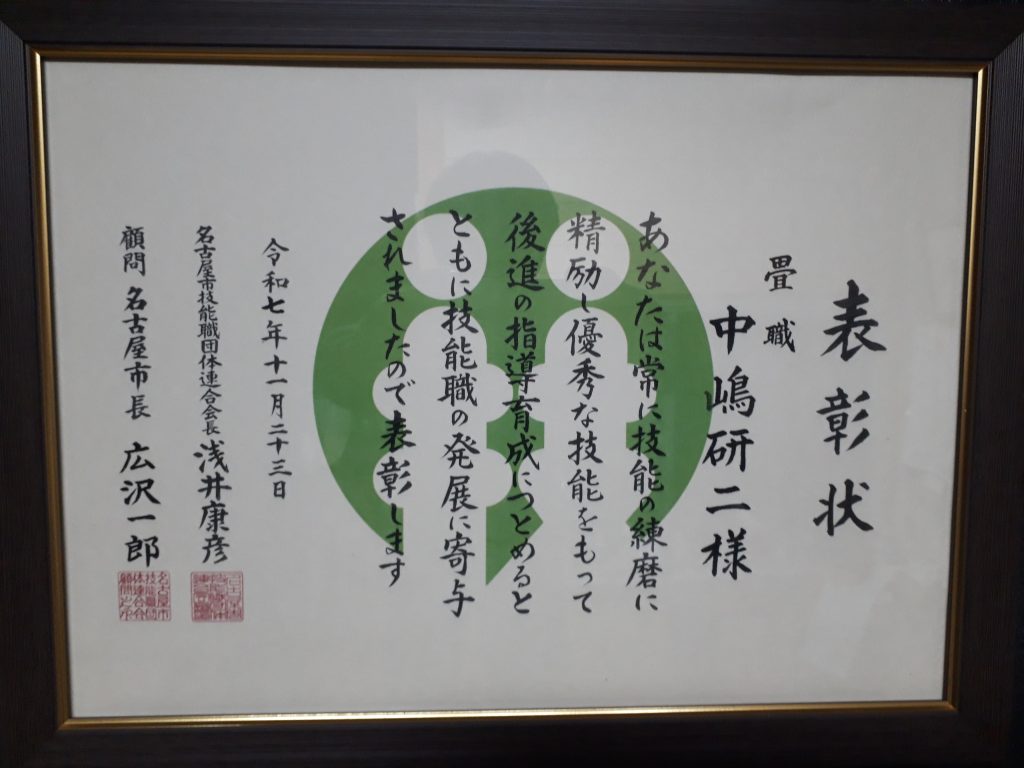 表彰状
畳職
中嶋研二様
あなたは常に技能の練磨に
精励し優秀な技能をもって
後進の指導育成につとめると
ともに技能職の発展に寄与
されましたので表彰します
令和七年十一月二十三日
名古屋市技能職団体連合会長 浅井康彦
顧問 名古屋市長 広沢一郎